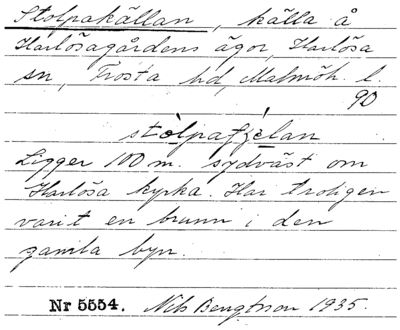 Stolpakällan, källa å
Harlösagårdens ägor, Harlösa
sn, Frosta hd, Malmöh. l.
90
stòlpatjélan
Ligger 100 m. sydväst om
Harlösa kyrka. Har troligen
varit en brunn i den
gamla byn.
Nr 5554. Nils Bengtsson 1935.